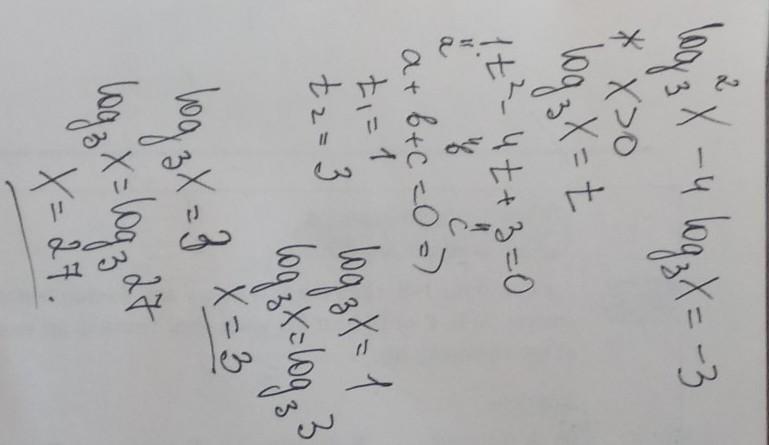 log₃²x - 4 log₃x = -3
* x>0
log₃x = t
1.t² - 4t + 3 = 0
a b c
a + b + c = 0 =>
t₁ = 1
t₂ = 3
log₃x = 1
log₃x = log₃3
x = 3
log₃x = 3
log₃x = log₃27
x = 27.